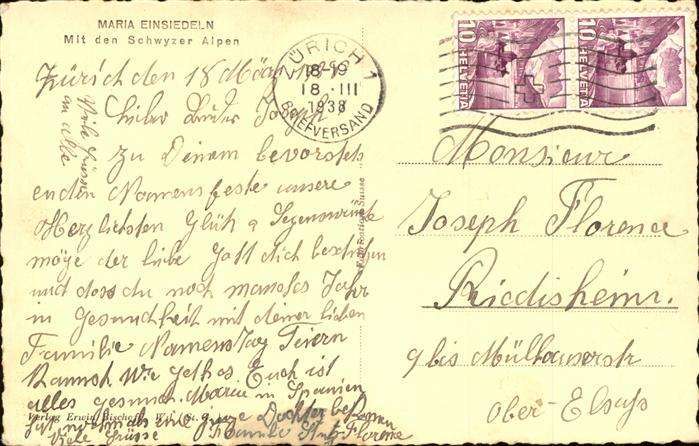 MARIA EINSIEDELN
Mit den Schwyzer Alpen
Zürich den 18 März
Lieber Bruder Joseph
Zu Deinem bevorsteh
enden Namensfeste unsere
Herzlichsten Glück & Segenswünsche
möge der liebe Gott dich beschützen
und dass du noch manches Jahr
in Gesundheit mit deiner lieben
Familie NamensTag Feiern
Kannst. Wie geht es Euch ist
alles gesund. Maria in Spanien
hat nochmals eine junge Dochter bekommen
Viele Grüsse Familie Florence
Viele Grüsse
an alle
Verlag Erwin Bischoff, Wil (St. G.)
ZÜRICH 1
18-19
18.III
1938
BRIEFVERSAND
10 HELVETIA
10 HELVETIA
Monsieur
Joseph Florence
Riedisheim.
9 bis Mülhauserstr
Ober-Elsass